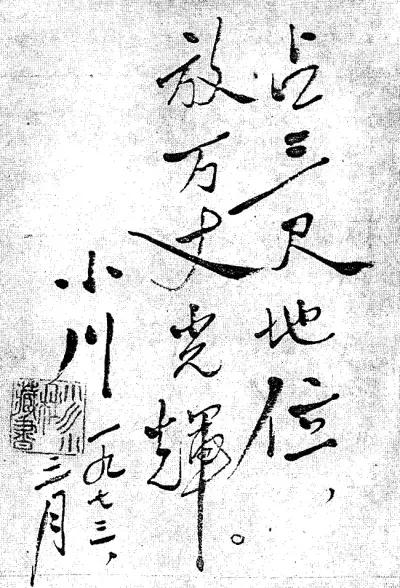 占三尺地位，
放万丈光輝。
小川
一九七三，
三月
藏書